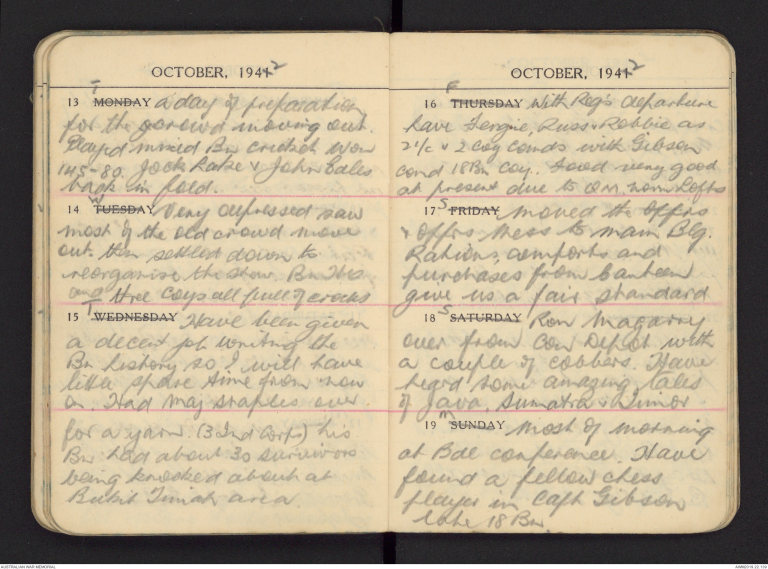 OCTOBER, 1941 2
T
13 MONDAY A day of preparation
for the crowd moving out.
Played mixed Bn cricket won
145-80. Jock Hake & John Eales
back in fold.
W
14 TUESDAY Very depressed saw
most of the old crowd move
out. then settled down to
reorganise the show. Bn Hqs
and three coys all full of crocks
T
15 WEDNESDAY Have been given
a decent job writing the
Bn history so I will have
little spare time from now
on. Had Maj Staples over
for a yarn. (3 Ind Corps) his
Bn had about 30 survivors
being knocked about at
Bukit Timah area.
OCTOBER, 1941 2
F
16 THURSDAY With Reg's departure
have Fergie, Russ & Robbie as
2 i/c & 2 coy comds with Gibson
comd 18Bn coy. Food very good
at present due to QM, Norm Lofts
S
17 FRIDAY Moved the Offrs
& Offrs Mess to main Blg.
Rations, comforts and
purchases from Canteen
give us a fair standard
S
18 SATURDAY Ron Magarry
over from Con Depot with
a couple of cobbers. Have
heard some amazing tales
of Java, Sumatra & Timor.
M
19 SUNDAY Most of morning
at Bde conference. Have
found a fellow chess
player in Capt Gibson
late 18 Bn.
AUSTRALIAN WAR MEMORIAL